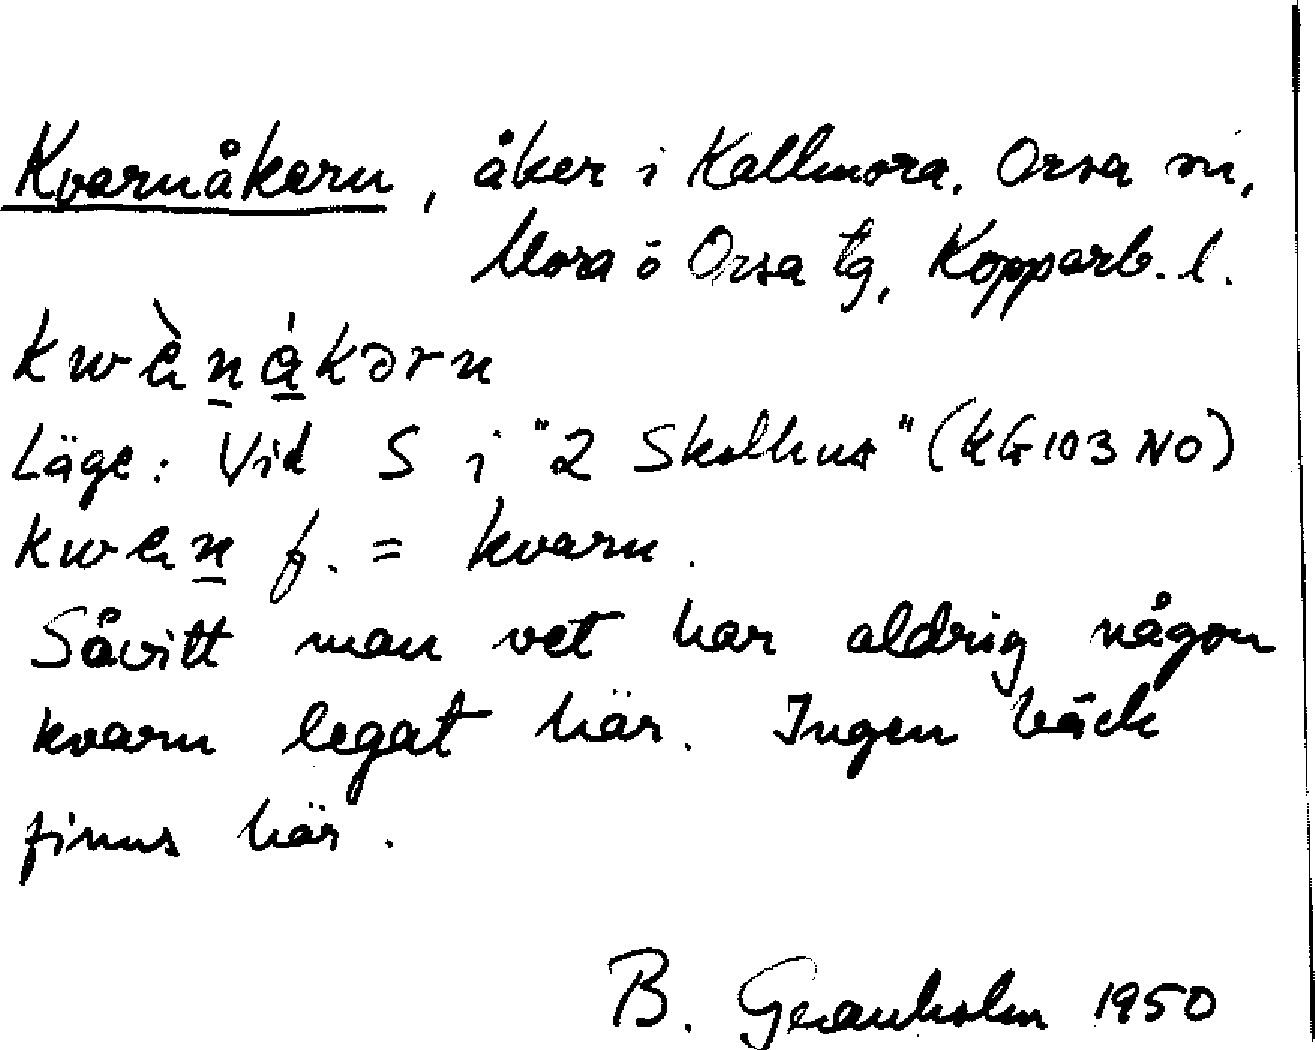 Kvarnåkern, åker i Kallmora, Orsa sn,
Mora o Orsa tg, Kopparb. l.
kwὲnåkərn
Läge: Vid S i "2 Skolhus" (KG 103 NO)
kwɛn f. = kvarn.
Såvitt man vet har aldrig någon
kvarn legat här. Ingen bäck
finns här.
B. Granholm 1950